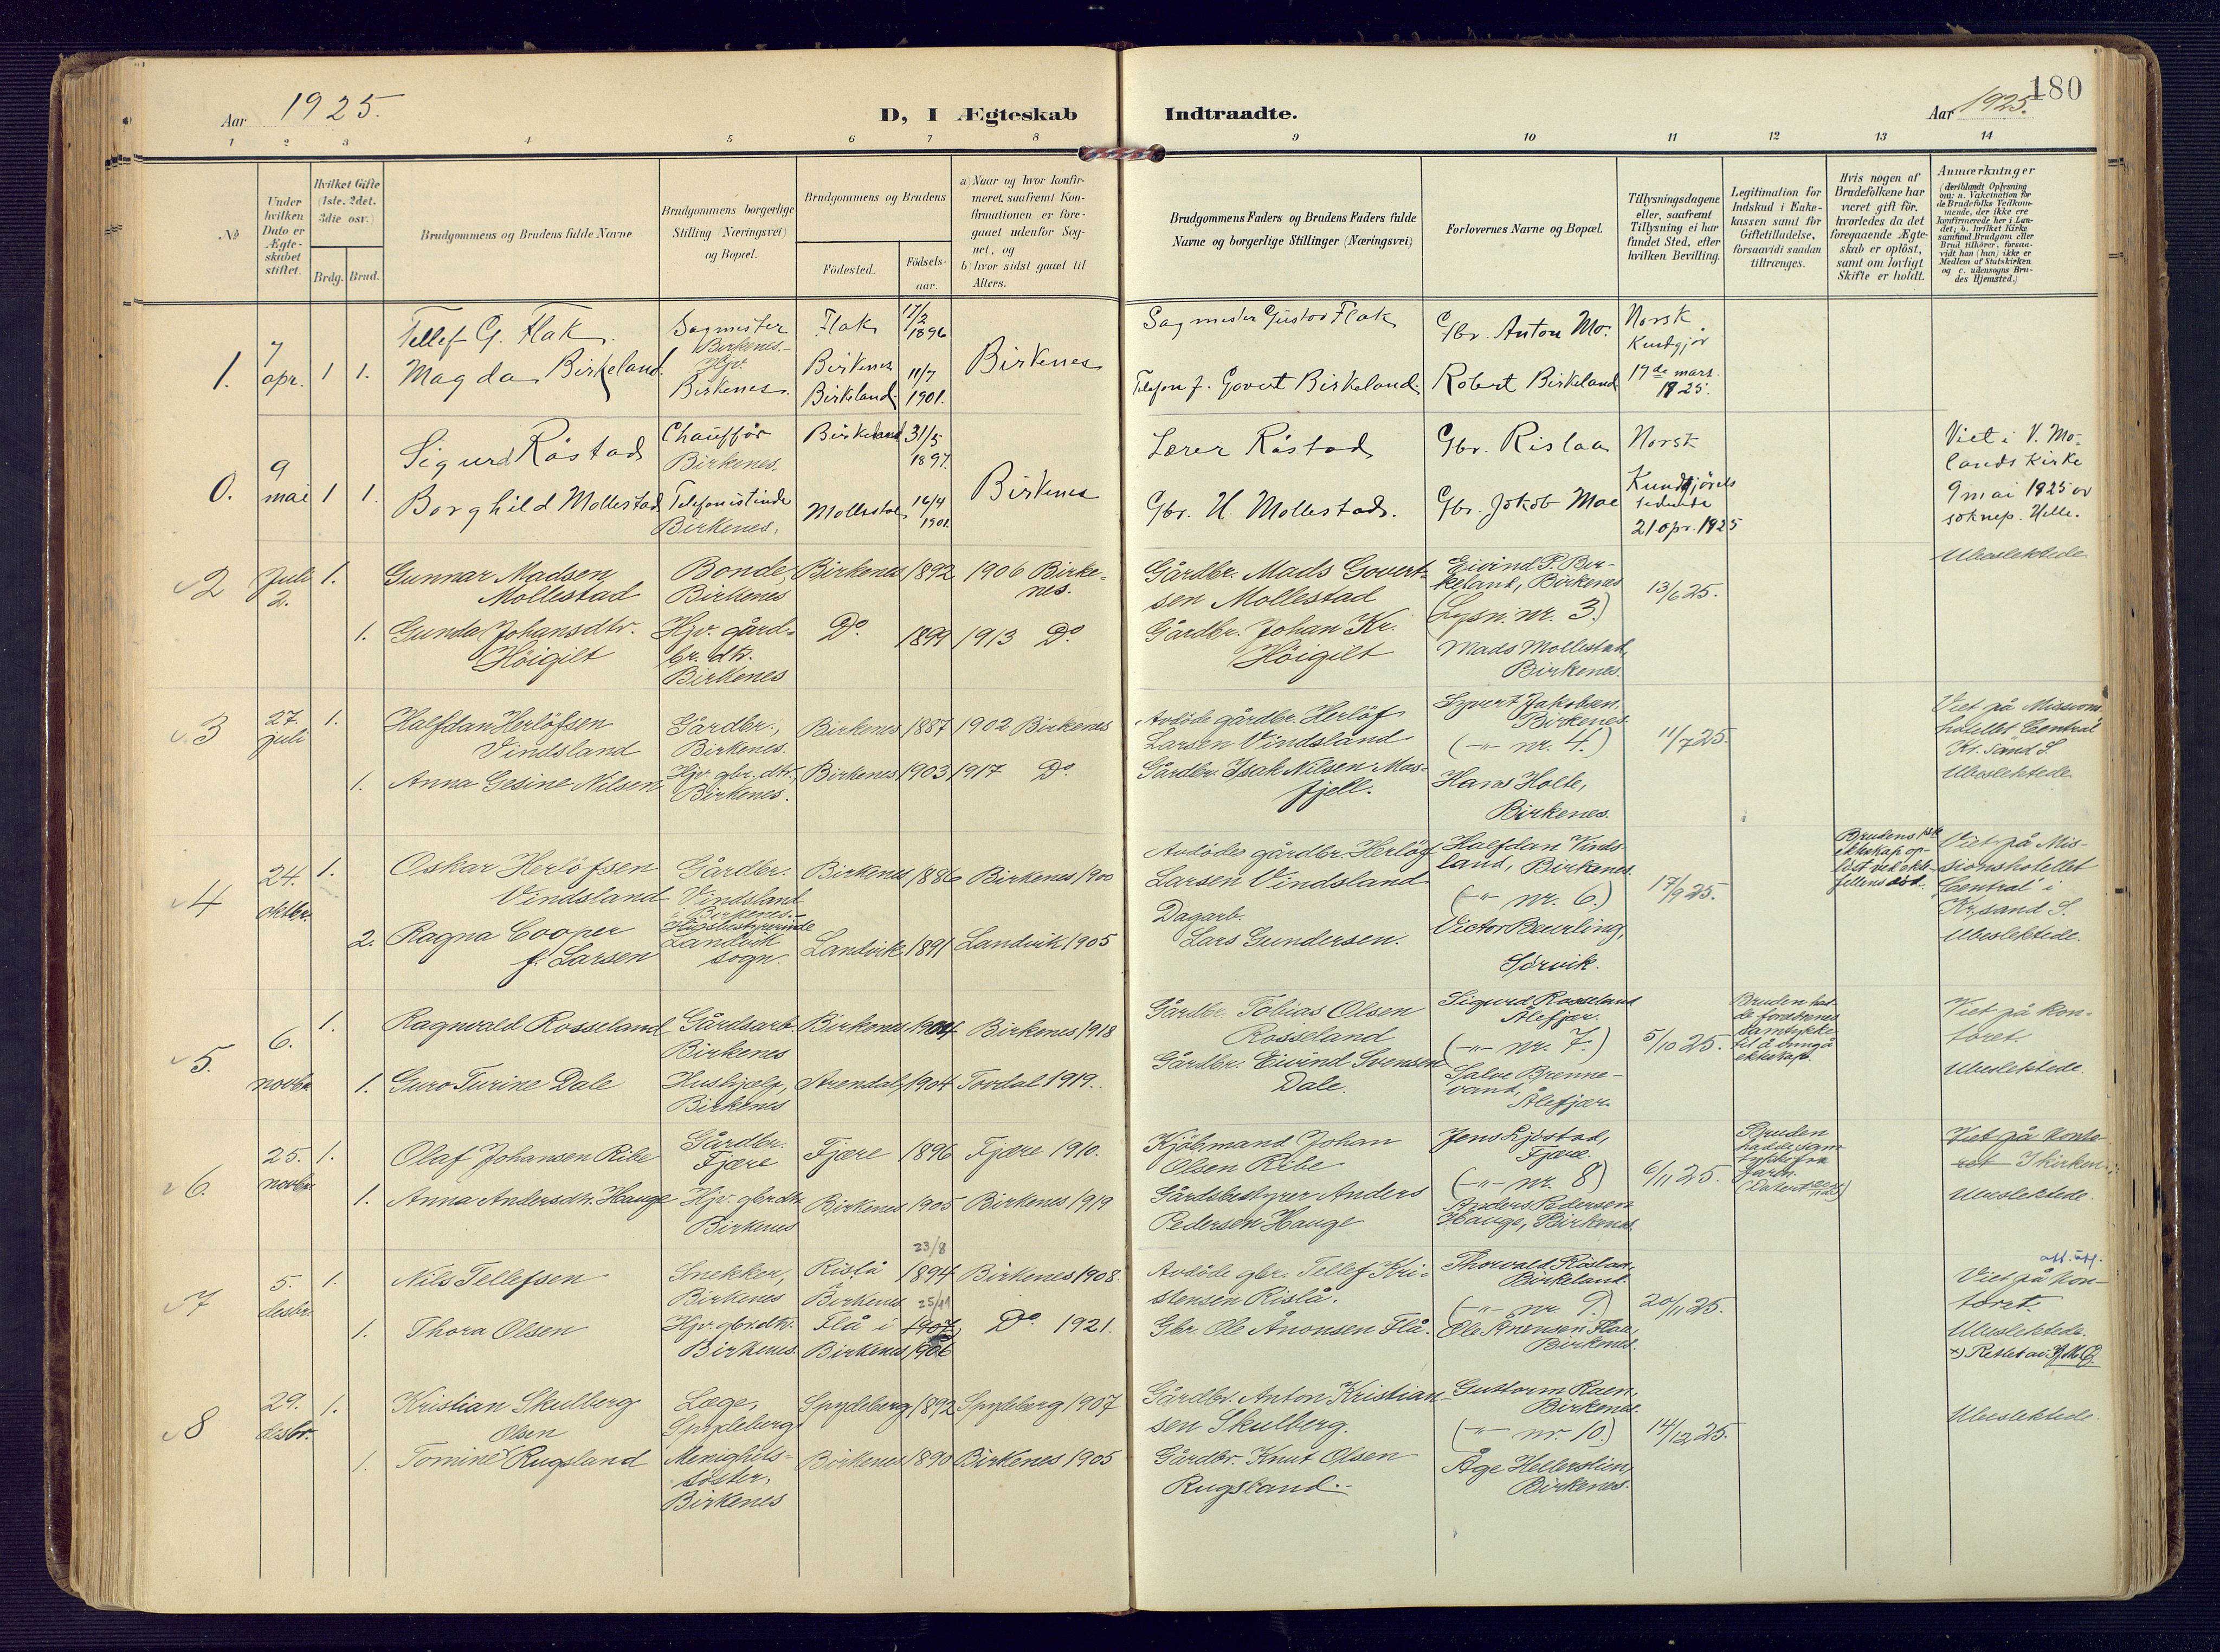 Aar 1925.
D, I Ægteskab Indtraadte.
Aar 1925. 180
1 2 3 4 5 6 7 8 9 10 11 12 13 14
№
Under hvilken Dato er Ægteskabet stiftet.
Hvilket Gifte (1ste, 2det, 3die osv.)
Brdg. Brud.
Brudgommens og Brudens fulde Navne
Brudgommens borgerlige Stilling (Næringsvei) og Bopæl.
Brudgommens og Brudens
Födested. Födsels-aar.
a) Naar og hvor konfirmeret, saafremt Konfirmationen er foregaaet udenfor Sognet, og
b) hvor sidst gaaet til Alters.
Brudgommens Faders og Brudens Faders fulde Navne og borgerlige Stillinger (Næringsvei)
Forlovernes Navne og Bopæl.
Tillysningsdagene eller, saafremt Tillysning ei har fundet Sted, efter hvilken Bevilling.
Legitimation for Indskud i Enkekassen samt for Giftetilladelse, forsaavidt saadan tiltrænges.
Hvis nogen af Brudefolkene har været gift för, hvorledes da det foregaaende Ægteskab er oplöst, samt om lovligt Skifte er holdt.
Anmærkninger
(deriblandt Oplysning om: a. Vakcination for de Brudefolks Vedkommende, der ikke ere konfirmerede her i Landet; b. hvilket Kirkesamfund Brudgom eller Brud tilhörer, forsaavidt han (hun) ikke er Medlem af Statskirken og c. udensogns Brudes Hjemsted.)
1. 7 apr. 1 1.
Tellef G. Flak. Sagmester Birkenes. Flak Birkenes 17/2 1896 Birkenes
Magda Birkeland. Hjv. Birkenes. Birkeland. 11/7 1901.
Sagmester Gustav Flak Gbr. Anton Mo. Norsk Kundgjør
Telefon f. Govert Birkeland. Robert Birkeland 19de mars. 1925.
0. 9 mai 1 1.
Sigurd Råstad Chauffør Birkenes. Birkeland 31/5 1897. Birkenes
Borghild Mollestad Telefonistinde Birkenes. Mollestad 16/4 1901.
Lærer Råstad Gbr. Rislaa Norsk
Gbr. U. Mollestad. Gbr. Jakob Moe Kundgjørels tedende 21 apr. 1925
Viet i V. Mo-
lands Kirke
9 mai 1925 av
soknep. Helle.
2 Juli 2. 1.
Gunnar Madsen Mollestad Bonde, Birkenes Birkenes 1892 1906 Birkenes.
1. Gunda Johansdtr. Höigilt Hjv. gårdbr. dtr. Birkenes Do. 1899 1913 Do.
Gårdbr. Mads Govertsen Mollestad Eivind P. Birkeland, Birkenes (Lysn. nr. 3.) 13/6 25. Ubeslektede
Gårdbr. Johan Kr. Höigilt Mads Mollestad, Birkenes.
3 27. juli 1.
Halfdan Herlöfsen Vindsland Gårdbr., Birkenes. Birkenes 1887 1902 Birkenes
1. Anna Gesine Nilsen Hjv. gbr. dtr., Birkenes. Birkenes 1903 1917 Do.
Avdöde gårdbr. Herlöf Larsen Vindsland Syvert Jakobsen. Birkenes. (-"- nr. 4.) 11/7 25.
Gårdbr. Isak Nilsen Mosfjell. Hans Holte, Birkenes.
Viet på Missions
hotellet "Central"
Kr. sand S.
Ubeslektede.
4 24. oktbr. 1.
Oskar Herlöfsen Vindsland Gårdbr. Vindsland i Birkenes.- Birkenes 1886 Birkenes 1900
2. Ragna Cooper f. Larsen Husbestyrerinde Landvik sogn. Landvik 1891 Landvik 1905
Avdöde gårdbr. Herlöf Larsen Vindsland Halfdan Vindsland, Birkenes. (-"- nr. 6.) 17/9 25.
Dagarb. Lars Gundersen. Victor Beurling, Sörvik.
Brudens 1ste
ekteskap op-
löst ved ekte-
fellens död.
Viet på Mis-
sionshotellet
"Central" i
Kr. sand S.
Ubeslektede.
5. 6. novbr. 1.
Ragnvald Rosseland Gårdsarb. Birkenes Birkenes 1904 Birkenes 1918
1. Guro Turine Dale Hushjælp, Birkenes Arendal, 1904 Tovdal 1919.
Gårdbr. Tobias Olsen Rosseland Sigurd Rosseland Ålefjær. (-"- nr. 7.) 5/10 25.
Gårdbr. Eivind Svensen Dale. Salve Brennevand, Ålefjær.
Bruden had-
de foreldrenes
samtykke
til å inngå
ekteskap.
Viet på kon-
toret.
Ubeslektede.
6. 25. novbr. 1.
Olaf Johansen Ribe Gårdbr. Fjære Fjære 1896 Fjære 1910.
1. Anna Andersdtr. Hauge Hjv. gbr. dtr. Birkenes Birkenes 1905 Birkenes 1919
Kjöbmand Johan Olsen Ribe Jens Fjöstad, Fjære. (-"- nr. 8) 6/11 25.
Gårdsbestyrer Anders Pedersen Hauge Anders Pedersen Hauge, Birkenes
Bruden
hadde sam-
tykke fra
faren.
Viet på konto-
ret I kirken.
Ubeslektede.
7 5. desbr. 1.
Nils Tellefsen Snekker, Birkenes Rislå Birkenes 23/8 1894 Birkenes 1908.
1. Thora Olsen Hjv. gbr. dtr. Birkenes. Flå i Birkenes 25/11 1907 1906 Do. 1921.
Avdöde gbr. Tellef Kristensen Rislå. Thorvald Rislaa, Birkeland. (-"- nr. 9.) 20/11 25.
Gbr. Ole Ånonsen Flå. Ole Anonsen Flaa, Birkenes.
att. utf.
Viet på kon-
toret.
Ubeslektede.
x) Rettet av
8 29. desbr. 1.
Kristian Skulberg Olsen Læge, Spydeberg Spydeberg 1892 Spydeberg 1907
1. Tomine Rugsland Menighetssöster, Birkenes Birkenes 1890 Birkenes 1905
Gårdbr. Anton Kristiansen Skulberg. Guttorm Raen, Birkenes. (-"- nr. 10.) 14/12 25. Ubeslektede.
Gårdbr. Knut Olsen Rugsland.- Åge Hellerslien, Birkenes.